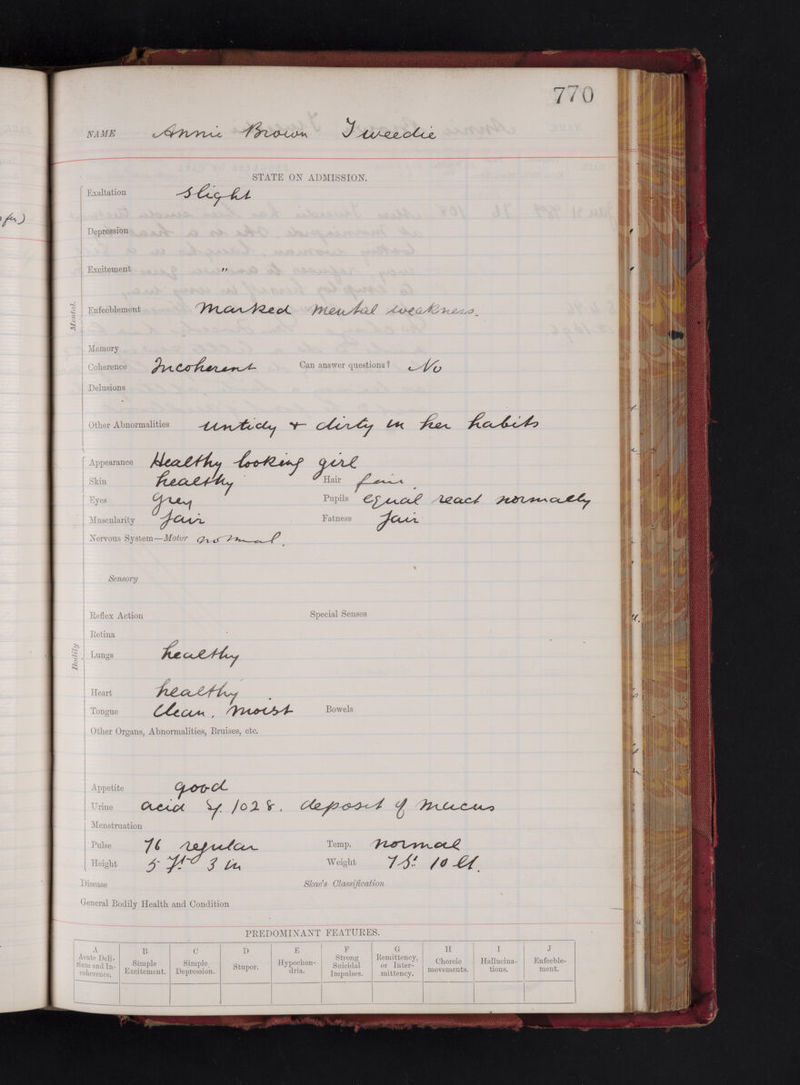 770
NAME Annie Brown Tweedie
STATE ON ADMISSION.
Mental.
Exaltation Slight
Depression
Excitement "
Enfeeblement Marked mental weakness.
Memory
Coherence Incoherent Can answer questions? No
Delusions
Other Abnormalities untidy + dirty in her habits
Bodily
Appearance Healthy looking girl
Skin healthy Hair fair.
Eyes Grey Pupils equal react normally
Muscularity fair Fatness fair
Nervous System—Motor normal.
Sensory
Reflex Action Special Senses
Retina
Lungs healthy
Heart healthy.
Tongue Clean, moist Bowels
Other Organs, Abnormalities, Bruises, etc.
Appetite good
Urine acid 1028. deposit of mucus
Menstruation
Pulse 76 regular Temp. normal
Height 5 ft 3 in Weight 7 St. 10 lb.
Disease Skae's Classification
General Bodily Health and Condition
PREDOMINANT FEATURES.
A B C D E F G H I J
Acute Delirium and Incoherence. Simple Excitement. Simple Depression. Stupor. Hypochondria. Strong Suicidal Impulses. Remittency, or Intermittency. Choreic movements. Hallucinations. Enfeeblement.